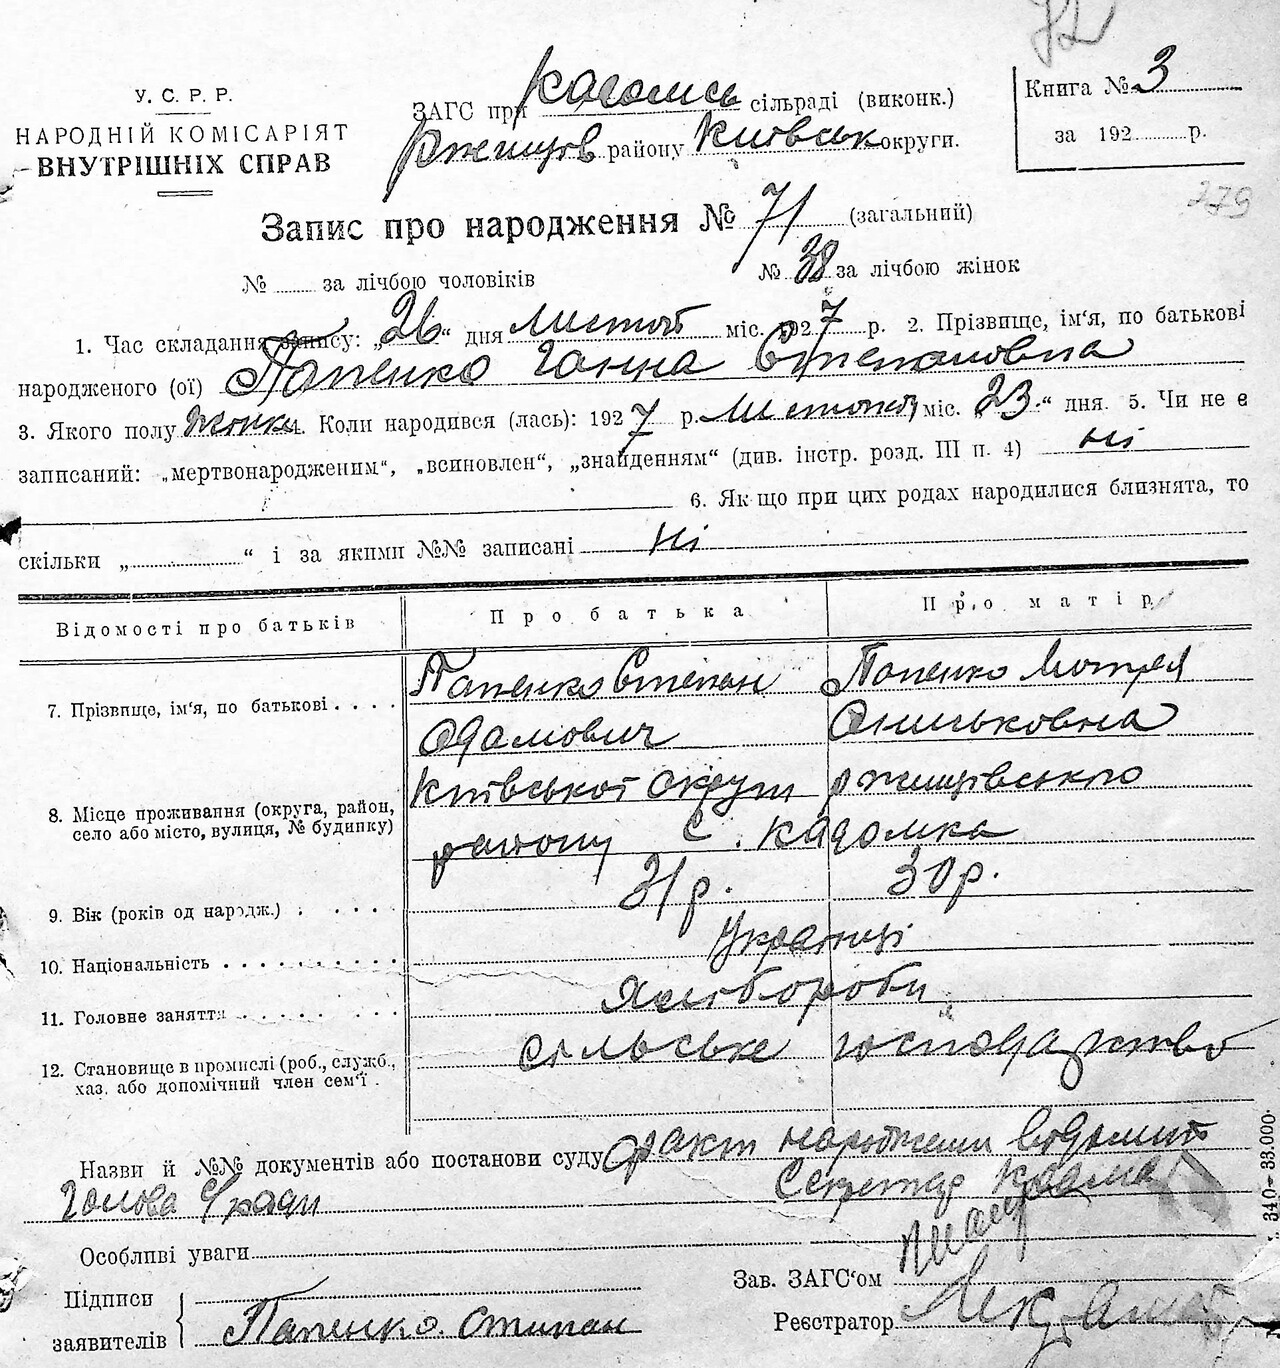 У. С. Р. Р.
НАРОДНІЙ КОМІСАРІЯТ
ВНУТРІШНІХ СПРАВ
ЗАГС при сільраді (виконк.)
Ржищів району Київськ округи.
Книга № 3
за 192 р.
279
Запис про народження № 71 (загальний)
№ за лічбою чоловіків № 38 за лічбою жінок
1. Час складання запису: „26“ дня Листоп міс. 1927 р. 2. Прізвище, ім‘я, по батькові
народженого (ої) Папенко Ганна Степановна
3. Якого полу жінки. Коли народився (лась): 1927 р. Листопад міс. 23“ дня. 5. Чи не є
записаний: „мертвонародженим“, „всиновлен“, „знайденням“ (див. інстр. розд. III п. 4) ні
6. Як що при цих родах народилися близнята, то
скільки „ “ і за якими №№ записані ні
Відомості про батьків Про батька Про матір
7. Прізвище, ім‘я, по батькові Папенко Степан Адамович Папенко Мотря Ониськовна
8. Місце проживання (округа, район, село або місто, вулиця, № будинку) Київської округи ржищівського району С. Кадомка
9. Вік (років од народж.) 31 р. 30 р.
10. Національність Українці
11. Головне заняття Хлібороби
12. Становище в промислі (роб., служб., хаз. або допомічний член сем‘ї Сільське господарство
Назви й №№ документів або постанови суду факт народження
Голова с/ради Секретар
Особливі уваги
Зав. ЗАГС‘ом
Підписи
заявителів Папенко. Стипан
Реєстратор
340—33.000.